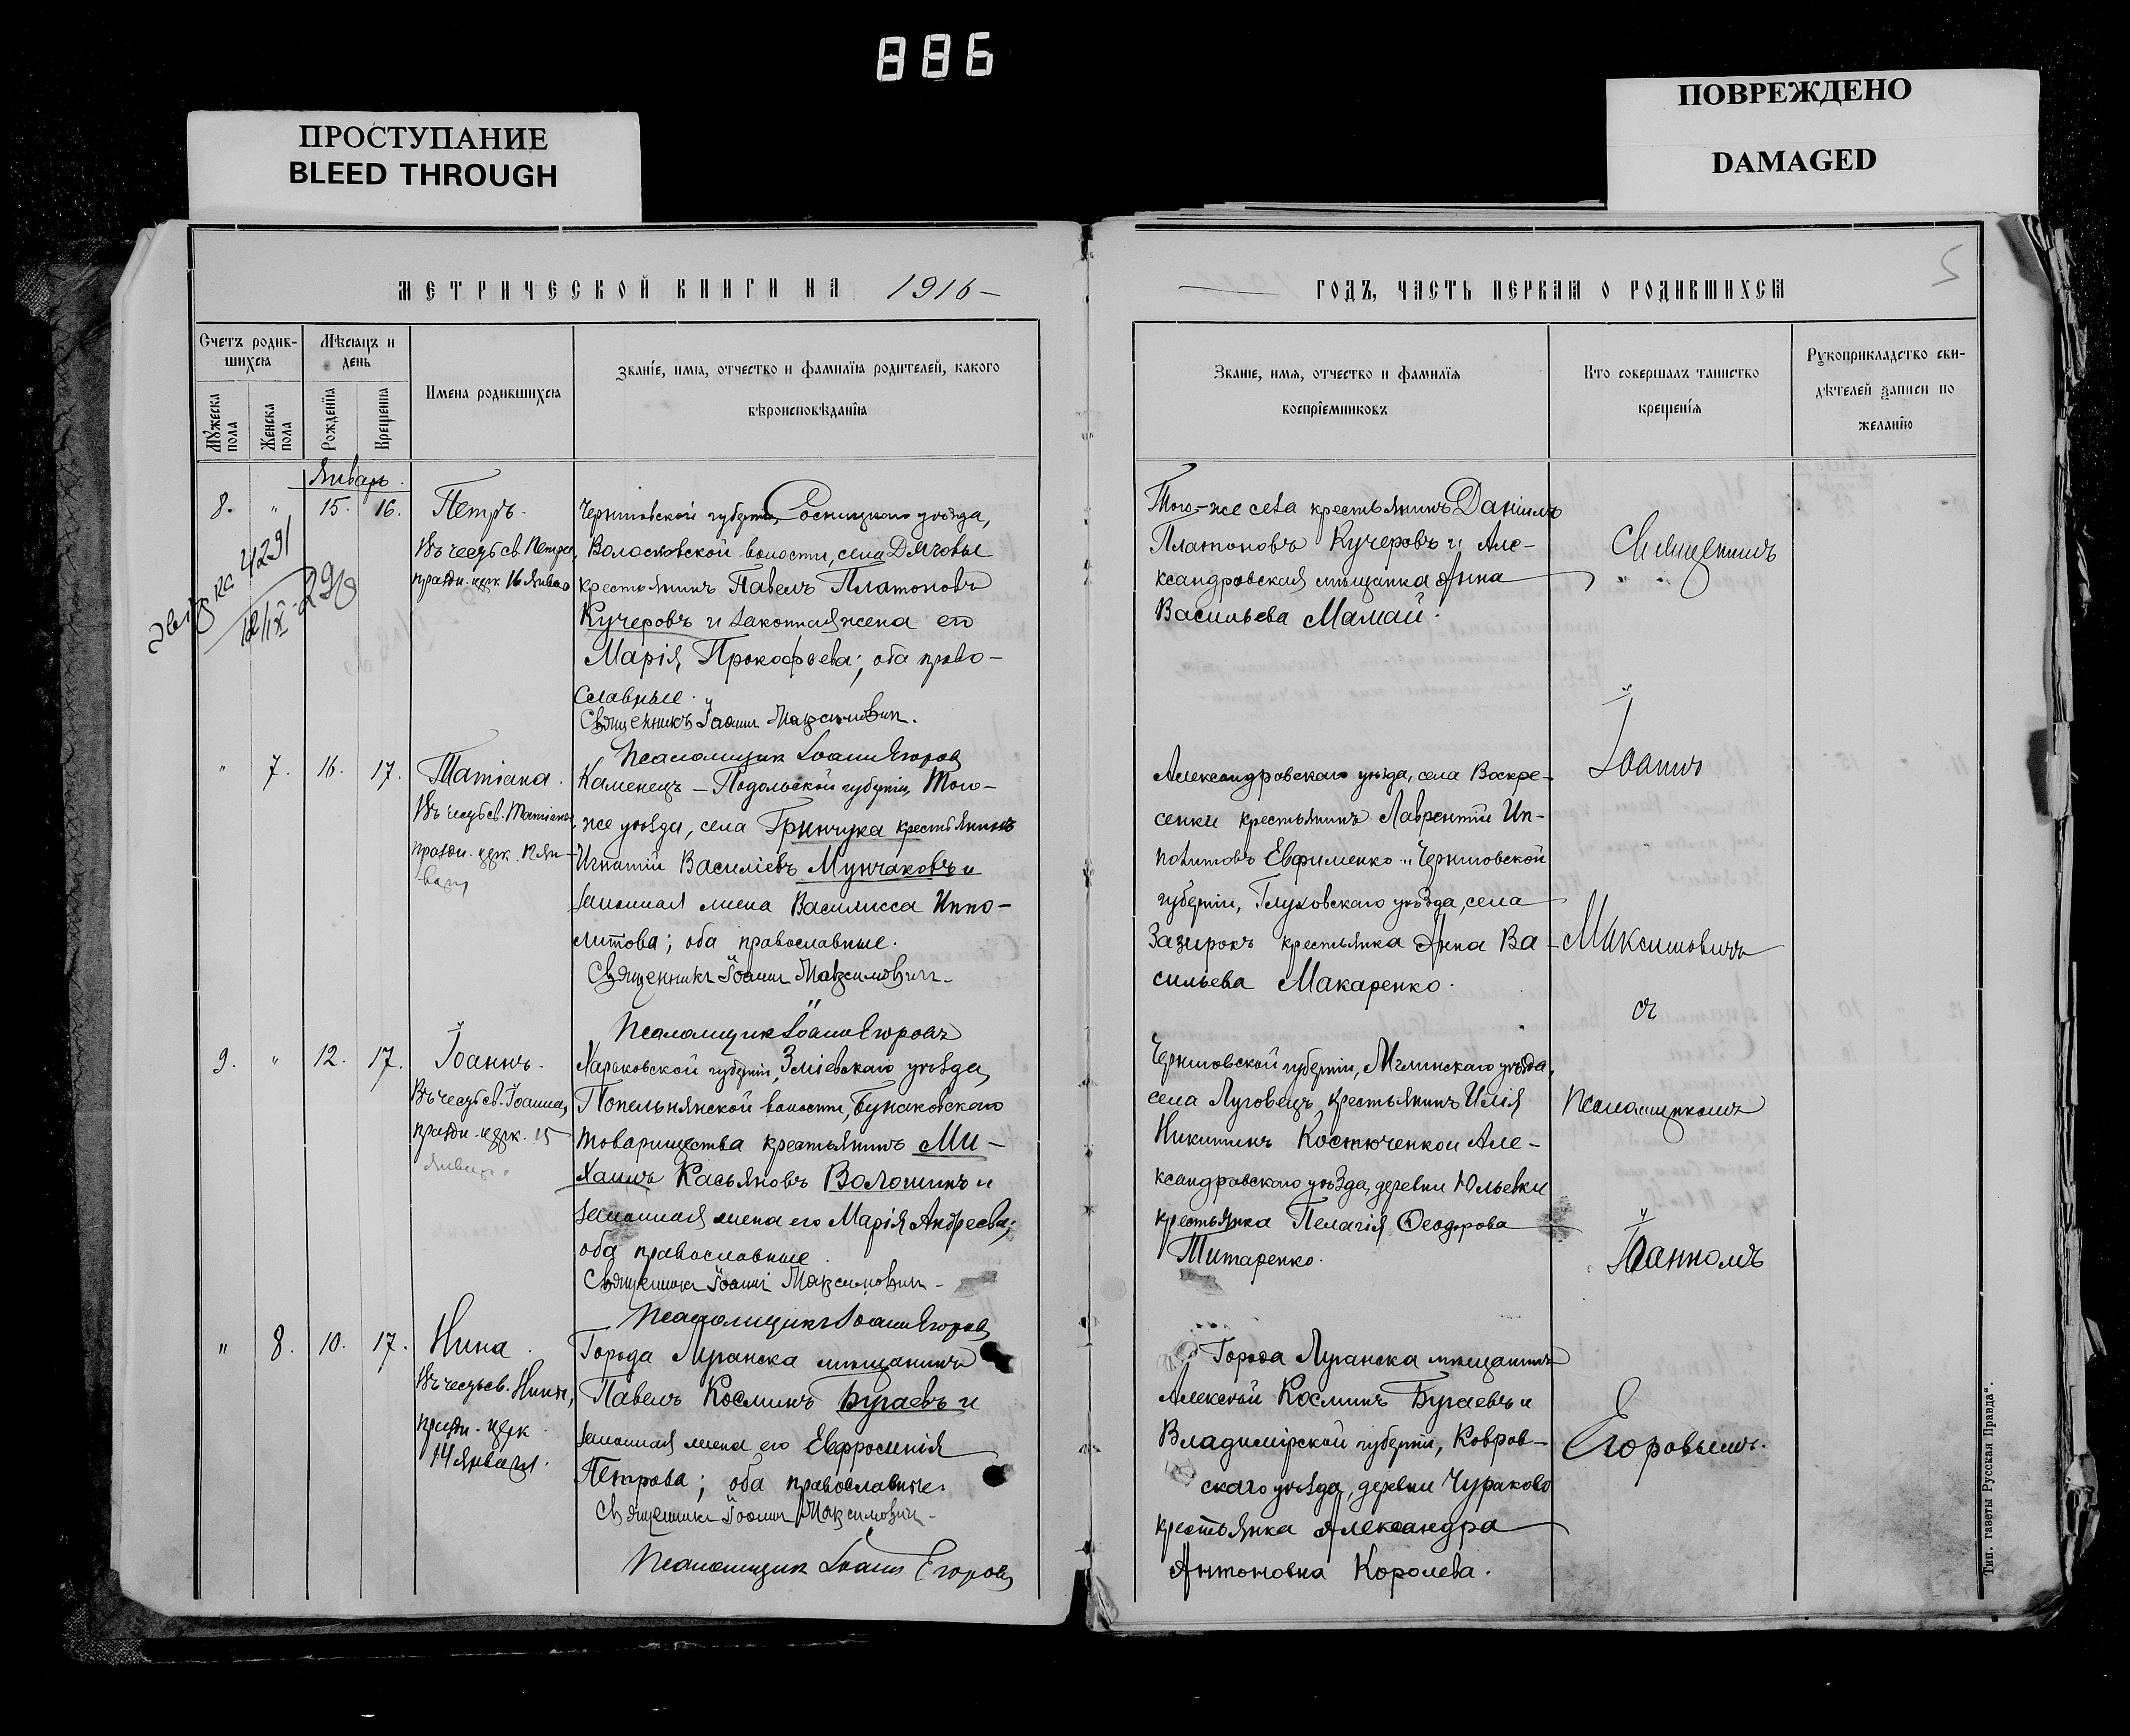 886
ПРОСТУПАНИЕ
BLEED THROUGH
ПОВРЕЖДЕНО
DAMAGED
МЕТРИЧЕСКОЙ КНИГИ НА 1916 –
Счетъ родив-
шихся
Мѣсяцъ и
день
Мужеска
пола
Женска
пола
Рожденїя
Крещенія
Имена родившихся
Званіе, имя, отчество и фамилїя родителей, какого
вѣроисповѣданїя
Январь.
8. " 15. 16. Петръ.
Въ честь св. Петра,
праздн. церк 16 Января
Черниговской губерніи, Сосницкаго уѣзда,
Волосковской волости, села Дяговы
крестьянинъ Павелъ Платоновъ
Кучеровъ и законная жена его
Марія Прокофьева; оба право-
славные.
Священникъ Іоаннъ Максимовичъ.
Псаломщик Іоаннъ Егоровъ
4291
12/IX
" 7. 16. 17. Татіана.
Въ честь св. Татіаны,
праздн. церк. 12 Ян-
варя
Каменецъ – Подольской губерніи, того-
же уѣзда, села Гринчука крестьянинъ
Игнатій Василіевъ Мунчаковъ и
законная жена Василисса Иппо-
литова; оба православные.
Священникъ Іоаннъ Максимовичъ.
Псаломщикъ Іоаннъ Егоровъ
9. " 12. 17. Іоаннъ.
Въ честь св. Іоанна,
праздн. церк. 15
Января.
Харьковской губерніи, Зміевскаго уѣзда,
Попельнянской волости, Бунаковскаго
товарищества крестьянинъ Ми-
хаилъ Касьяновъ Волошинъ и
законная жена его Марія Андреева;
оба православные.
Священникъ Іоаннъ Максимовичъ.
Псаломщикъ Іоаннъ Егоровъ
" 8. 10. 17. Нина.
Въ честь св. Нины,
праздн. церк.
14 Января.
Города Луганска мѣщанинъ
Павелъ Косминъ Бугаевъ и
законная жена его Евфросинія
Петрова; оба православные.
Священникъ Іоаннъ Максимовичъ.
Псаломщик Іоаннъ Егоровъ
ГОДЪ, ЧАСТЬ ПЕРВАЯ О РОДИВШИХСЯ
Званіе, имя, отчество и фамилїя
воспрїемниковъ
Кто совершалъ таинство
крещенія
Рукоприкладство сви-
дѣтелей записи по
желанїю
Того-же села крестьянинъ Даніилъ
Платоновъ Кучеровъ и Але-
ксандровская мѣщанка Анна
Васильева Мамай.
Александровскаго уѣзда, села Воскре-
сенки крестьянинъ Лаврентій Ип-
политовъ Ефименко и Черниговской
губерніи, Глуховскаго уѣзда, села
Зазирокъ крестьянка Анна Ва-
сильева Макаренко.
Черниговской губерніи, Мглинскаго уѣзда,
села Луговецъ крестьянинъ Илія
Никитинъ Костюченко и Але-
ксандровскаго уѣзда, деревни Юльевки
крестьянка Пелагія Ѳеодорова
Титаренко.
Города Луганска мѣщанинъ
Алексѣй Косминъ Бугаевъ и
Владимірской губерніи, Ковров-
скаго уѣзда, деревни Чураково
крестьянка Александра
Антоновна Королева.
Священникъ
Іоаннъ
Максимовичъ
съ
Псаломщикомъ
Іоанномъ
Егоровымъ.
Тип. газеты „Русская Правда“.